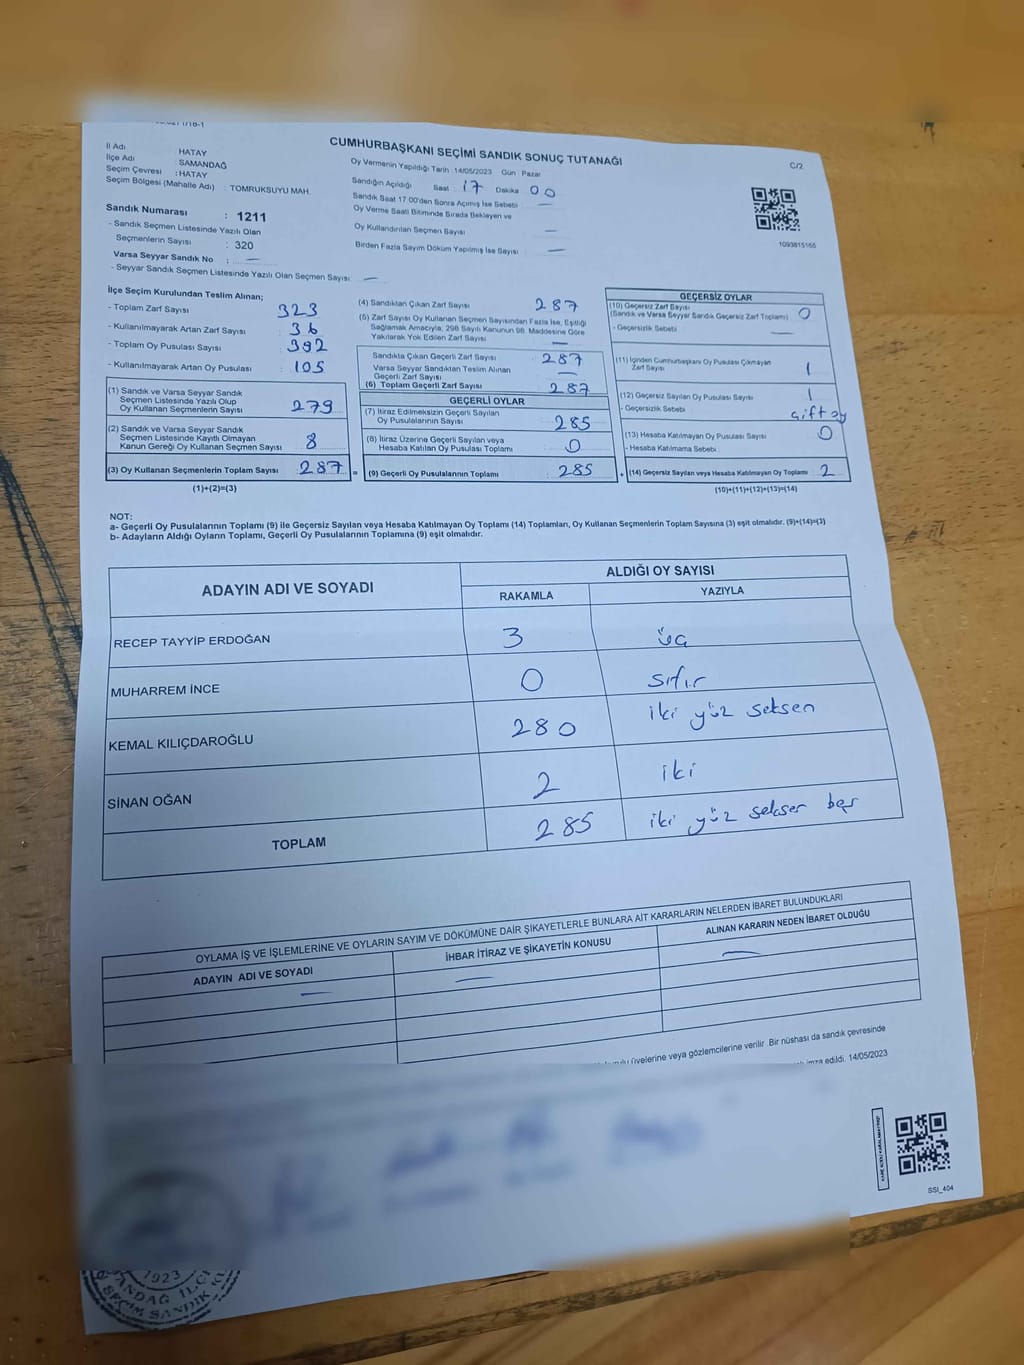 CUMHURBAŞKANI SEÇİMİ SANDIK SONUÇ TUTANAĞI
C/2
İl Adı : HATAY
İlçe Adı : SAMANDAĞ
Seçim Çevresi : HATAY
Seçim Bölgesi (Mahalle Adı) : TOMRUKSUYU MAH.
Oy Vermenin Yapıldığı Tarih :14/05/2023 Gün : Pazar
Sandığın Açıldığı Saat : 17 Dakika 00
Sandık Saat 17.00'den Sonra Açılmış İse Sebebi : —
Oy Verme Saati Bitiminde Sırada Bekleyen ve
Oy Kullandırılan Seçmen Sayısı —
Birden Fazla Sayım Döküm Yapılmış İse Sayısı —
1093815165
Sandık Numarası : 1211
- Sandık Seçmen Listesinde Yazılı Olan
Seçmenlerin Sayısı : 320
Varsa Seyyar Sandık No : —
- Seyyar Sandık Seçmen Listesinde Yazılı Olan Seçmen Sayısı: —
İlçe Seçim Kurulundan Teslim Alınan;
- Toplam Zarf Sayısı : 323
- Kullanılmayarak Artan Zarf Sayısı : 36
- Toplam Oy Pusulası Sayısı : 392
- Kullanılmayarak Artan Oy Pusulası : 105
(1) Sandık ve Varsa Seyyar Sandık
Seçmen Listesinde Yazılı Olup
Oy Kullanan Seçmenlerin Sayısı : 279
(2) Sandık ve Varsa Seyyar Sandık
Seçmen Listesinde Kayıtlı Olmayan
Kanun Gereği Oy Kullanan Seçmen Sayısı : 8
(3) Oy Kullanan Seçmenlerin Toplam Sayısı : 287
(1)+(2)=(3)
(4) Sandıktan Çıkan Zarf Sayısı : 287
(5) Zarf Sayısı Oy Kullanan Seçmen Sayısından Fazla İse, Eşitliği
Sağlamak Amacıyla, 298 Sayılı Kanunun 98. Maddesine Göre
Yakılarak Yok Edilen Zarf Sayısı : —
Sandıkta Çıkan Geçerli Zarf Sayısı : 287
Varsa Seyyar Sandıktan Teslim Alınan
Geçerli Zarf Sayısı : —
(6) Toplam Geçerli Zarf Sayısı : 287
GEÇERLİ OYLAR
(7) İtiraz Edilmeksizin Geçerli Sayılan
Oy Pusulalarının Sayısı : 285
(8) İtiraz Üzerine Geçerli Sayılan veya
Hesaba Katılan Oy Pusulası Toplamı : 0
(9) Geçerli Oy Pusulalarının Toplamı : 285
GEÇERSİZ OYLAR
(10) Geçersiz Zarf Sayısı
(Sandık ve Varsa Seyyar Sandık Geçersiz Zarf Toplamı) : 0
- Geçersizlik Sebebi : —
(11) İçinden Cumhurbaşkanı Oy Pusulası Çıkmayan
Zarf Sayısı : 1
(12) Geçersiz Sayılan Oy Pusulası Sayısı : 1
- Geçersizlik Sebebi : çift oy
(13) Hesaba Katılmayan Oy Pusulası Sayısı : 0
- Hesaba Katılmama Sebebi :
(14) Geçersiz Sayılan veya Hesaba Katılmayan Oy Toplamı : 2
(10)+(11)+(12)+(13)=(14)
NOT:
a- Geçerli Oy Pusulalarının Toplamı (9) ile Geçersiz Sayılan veya Hesaba Katılmayan Oy Toplamı (14) Toplamları, Oy Kullanan Seçmenlerin Toplam Sayısına (3) eşit olmalıdır. (9)+(14)=(3)
b- Adayların Aldığı Oyların Toplamı, Geçerli Oy Pusulalarının Toplamına (9) eşit olmalıdır.
ADAYIN ADI VE SOYADI ALDIĞI OY SAYISI
RAKAMLA YAZIYLA
RECEP TAYYİP ERDOĞAN 3 üç
MUHARREM İNCE 0 sıfır
KEMAL KILIÇDAROĞLU 280 iki yüz seksen
SİNAN OĞAN 2 iki
TOPLAM 285 iki yüz seksen beş
OYLAMA İŞ VE İŞLEMLERİNE VE OYLARIN SAYIM VE DÖKÜMÜNE DAİR ŞİKAYETLERLE BUNLARA AİT KARARLARIN NELERDEN İBARET BULUNDUKLARI
ADAYIN ADI VE SOYADI İHBAR İTİRAZ VE ŞİKAYETİN KONUSU ALINAN KARARIN NEDEN İBARET OLDUĞU
— — —
üyelerine veya gözlemcilerine verilir. Bir nüshası da sandık çevresinde
imza edildi. 14/05/2023
SSI_404
1923
SEÇİM SANDIK